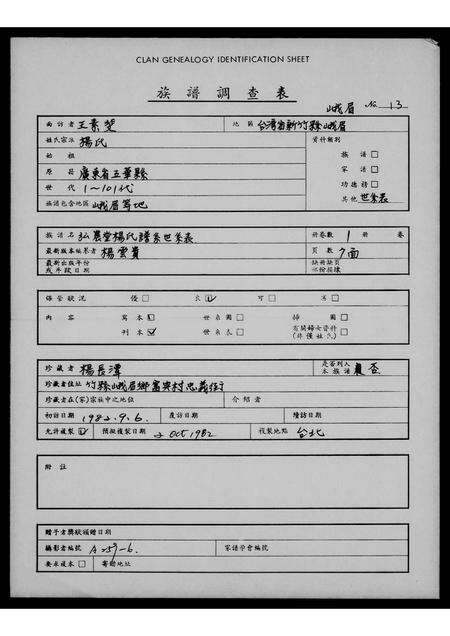 CLAN GENEALOGY IDENTIFICATION SHEET
族譜調查表
峨眉 No. 13
面訪者 王素斐 地區 台灣省新竹縣峨眉
姓氏宗派 楊氏 資料類別
始祖 族譜□
原居 廣東省五華縣 家譜□
世代 1~101代 功德榜□
族譜包含地區 峨眉等地 其他 世系表
族譜名 弘農堂楊氏譜系世系表 冊卷數 1 冊 卷
最新版本編著者 楊雲貴 頁數 7面
最新出版年份 缺冊缺頁
或年段日期 水份損壞
保管狀況 優□ 良☑ 可□ 劣□
內容 寫本 世系圖□ 掃圖□
刊本☑ 世系表□ 有關婦女資料□
珍藏者 楊長潭 是否列入 否
本族譜
珍藏者住址 竹縣峨眉鄉富興村忠義街
珍藏者在(家)宗族中之地位 介紹者
初訪日期 1982.9.6. 復訪日期 續訪日期
允許複製☑ 預擬複製日期 2 Oct 1982 複製地點 台北
附註
贈予者獎狀頒贈日期
攝影者編號 A257-6. 家譜學會編號
要求複本□ 寄動地址